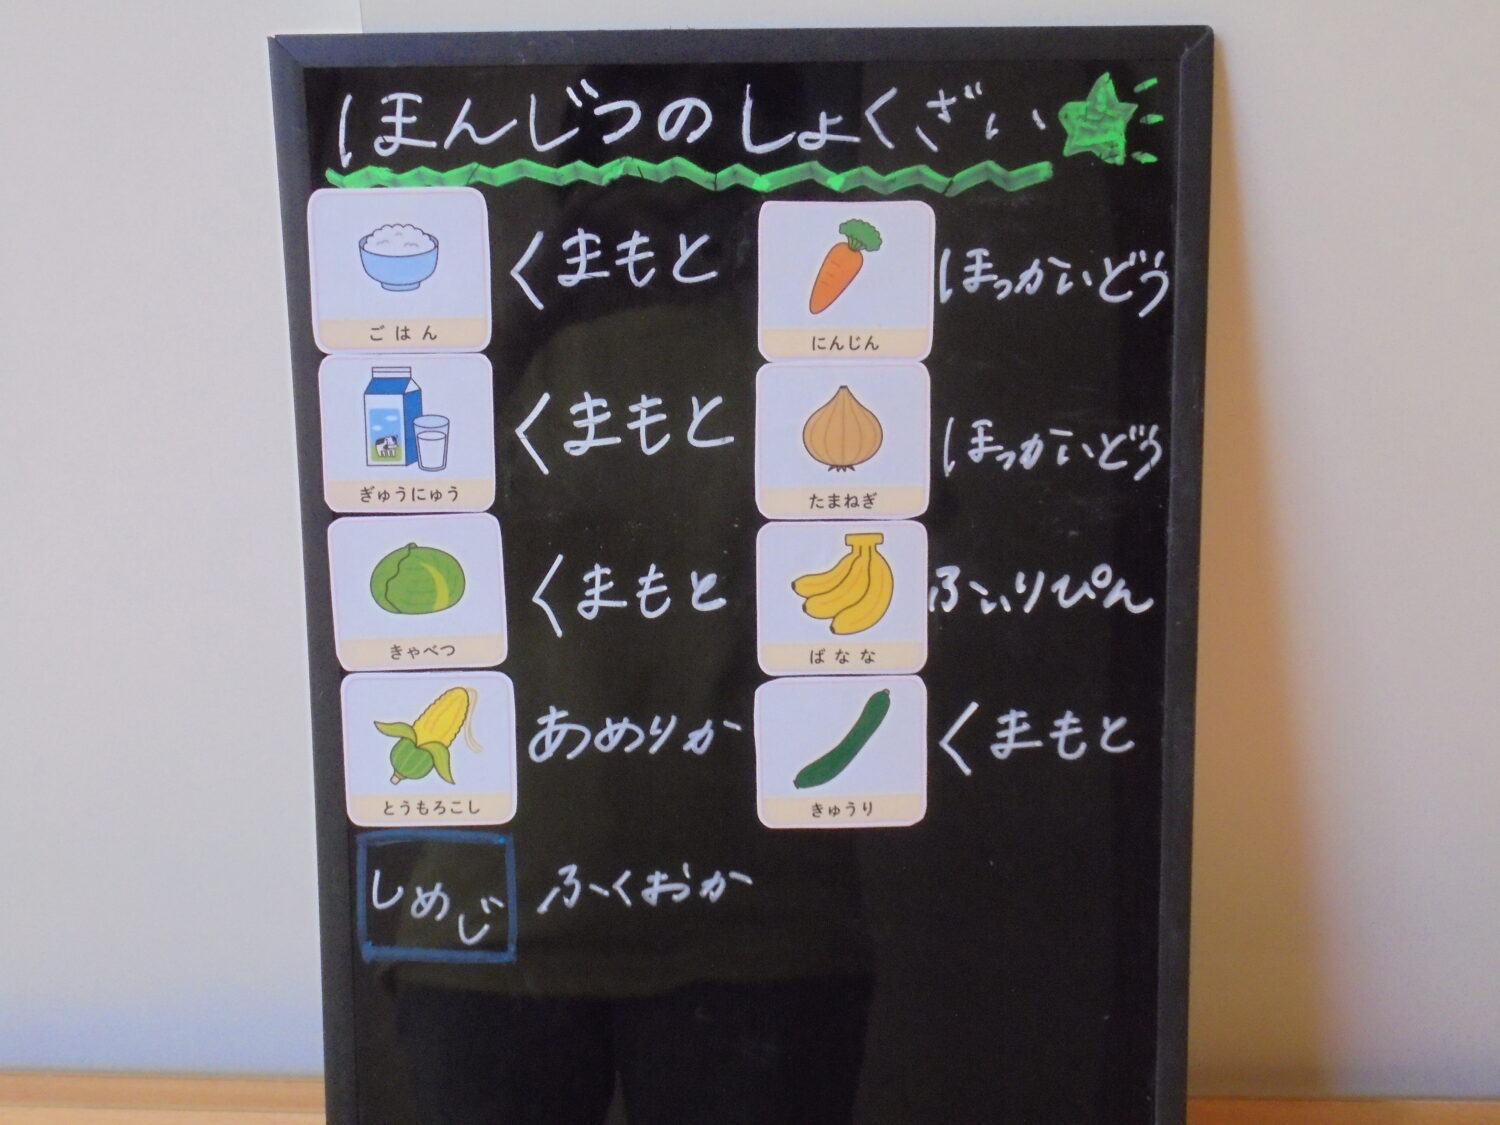 ほんじつのしょくざい
ごはん くまもと
ぎゅうにゅう くまもと
きゃべつ くまもと
とうもろこし あめりか
しめじ ふくおか
にんじん ほっかいどう
たまねぎ ほっかいどう
ばなな ふぃりぴん
きゅうり くまもと